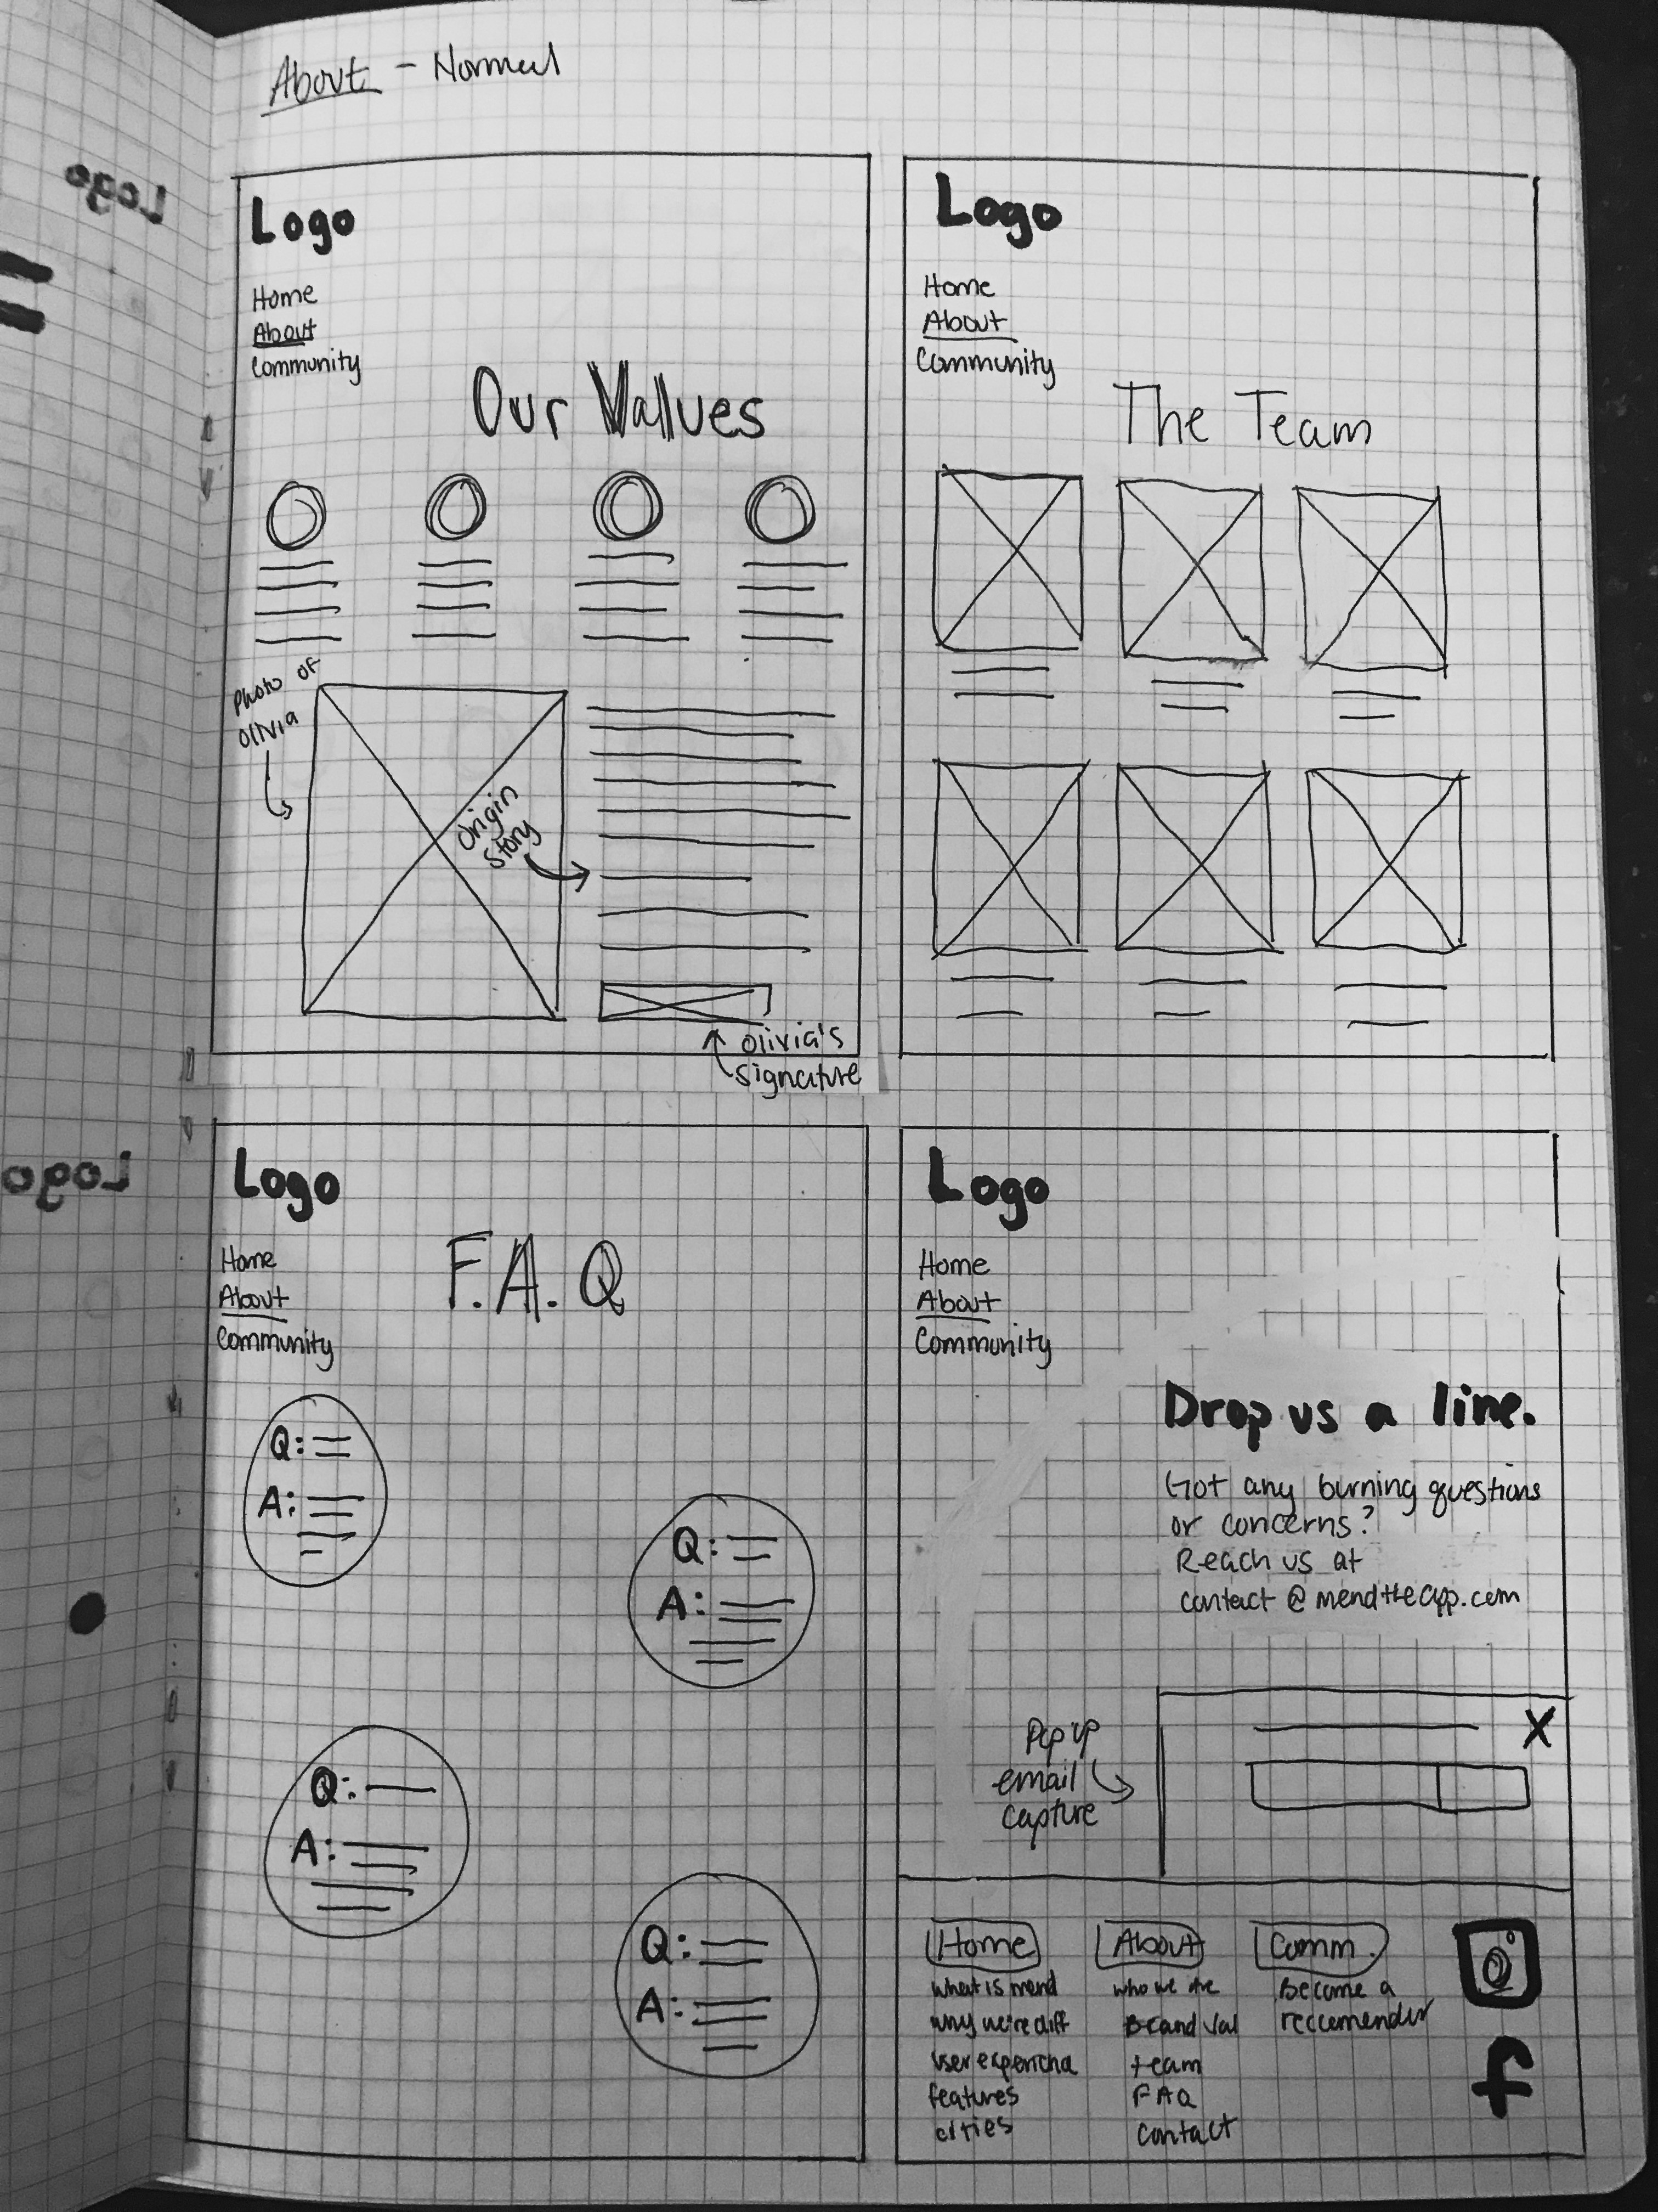 About - Normal
Logo
Home
About
Community
Our Values
Photo of
Olivia
Origin
Story
Olivia's
Signature
Logo
Home
About
Community
The Team
Logo
Home
About
Community
F.A.Q
Q:
A:
Q:
A:
Q:
A:
Q:
A:
Logo
Home
About
Community
Drop us a line.
Got any burning questions
or concerns?
Reach us at
contact@mendtheapp.com
Pop up
email
capture
X
Home
what is mend
why we're diff
user
features
cities
About
who we are
Brand Val
team
FAQ
contact
Comm.
Become a
reccomender
f
Logo
Logo